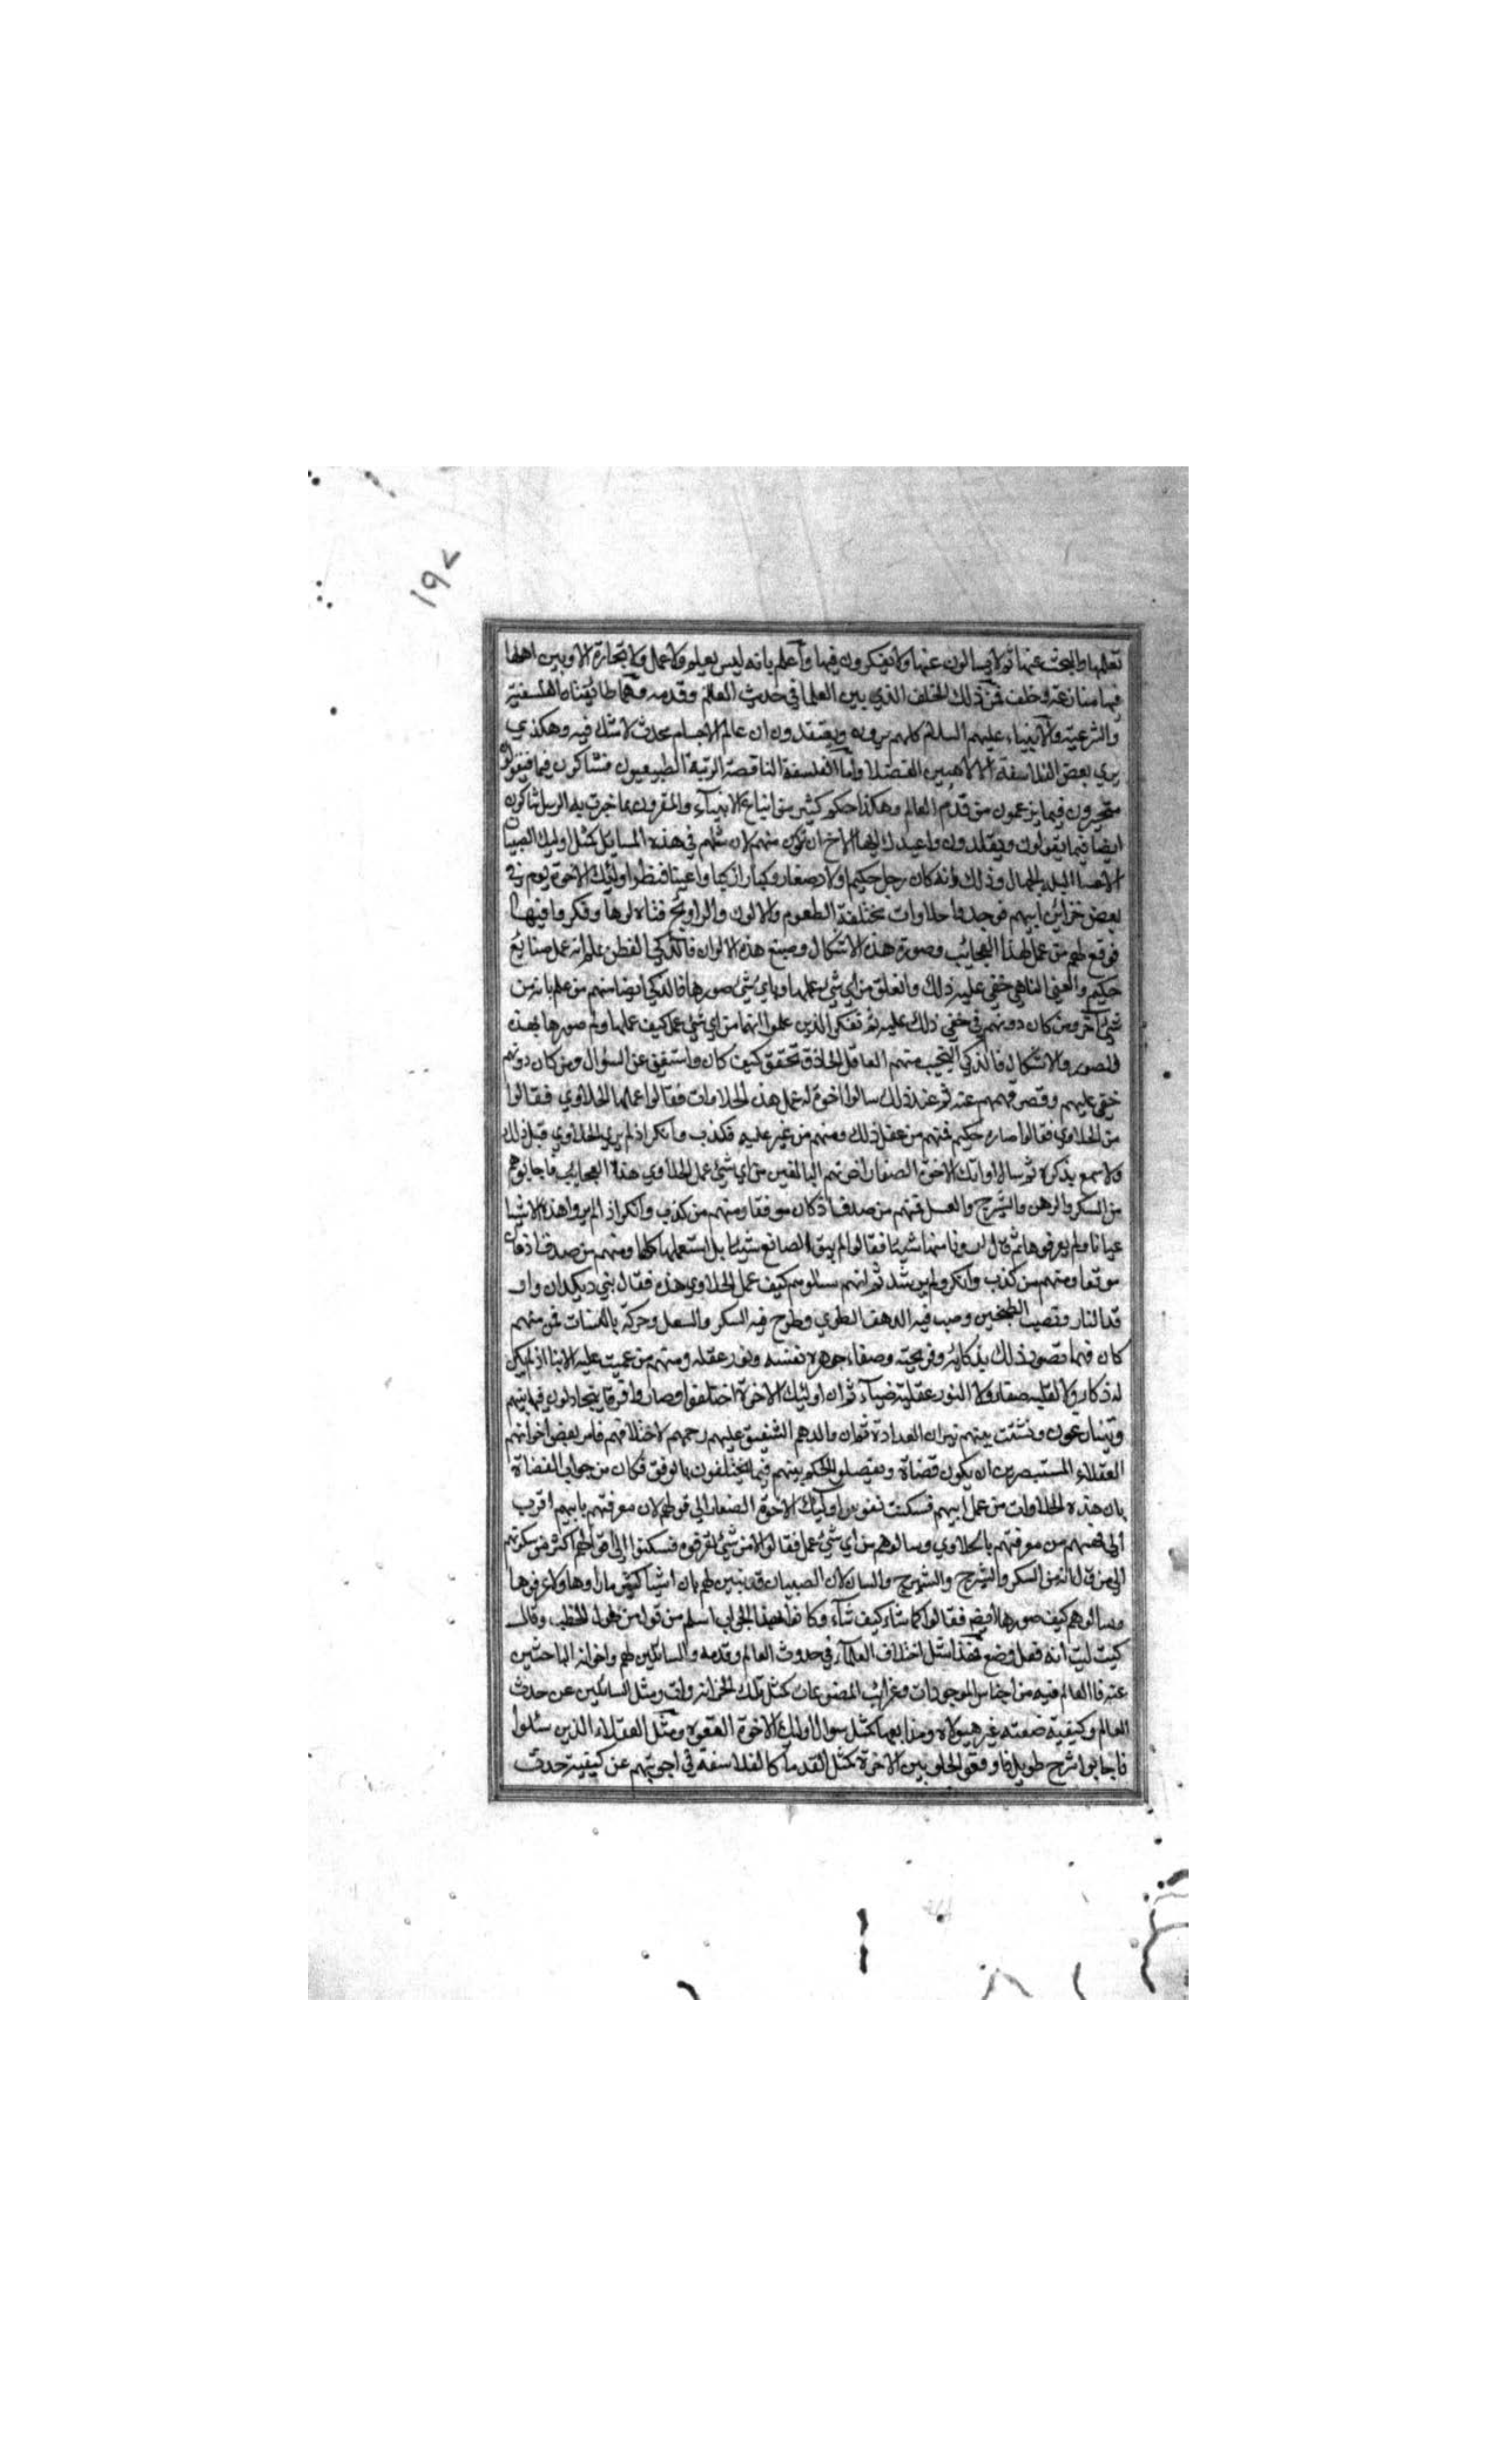 ١٩٧
تعلمها والبحث عنها ثم لا يسالون عنها ولا يفكرون فيها واعلم بانه ليس بعلم ولا عمل ولا تجارة الا وبين اهلها
فيها منازعة وخلف فمن ذلك الخلف الذي بين العلما في حدث العالم وقدمه وهما طايفتا الفلسفية
والشرعية والانبياء عليهم السلام كلهم يرونه ويعتقدون ان عالم الاجسام محدث لا شك فيه وهكذي
يري بعض الفلاسفة الالاهيين الفضلا واما الفلسفة الناقصة الرتبة الطبيعيون فشاكرون فيما
متحيرون فيما يزعمون من قدم العالم وهكذا حكم كثير من اتباع الانبيآء والمقرون بما خبرت به الرسل شاكون
ايضا فيما يقولون ويقلدون واعيدك ايها الاخ ان تكون منهم لان مثلهم في هذه المسايل كمثل اوليك الصبيان
الاخسا البله الجهال وذلك وانه كان رجل حكيم ولاد صغار وكبار ازكيا واغبيا فنظروا اوليك الاخوة يوم في
بعض خزاين ابيهم فوجدوا حلاوات مختلفة الطعوم والالون والراويح فتناولوها وفكروا فيها
فوقع لهم من عمل لهذا العجايب وصورة هذه الاشكال وصبغ هذه الالوان فالذكي الفطن علم انه عمل صنايع
حكيم والغبي الناهي خفي عليه ذلك وانغلق من اي شي عملها وباي شي صورها فالذكي ايضا منهم من علم بانه من
شي آخر ومن كان دونهم في خفي ذلك عليه ثم تفكر الذين علموا انها من اي شي عمل كيف عملها ولم صورها بهذه
الصور والاشكال فالذكي النجيب منهم العاقل الحاذق تحقق كيف كان واستغني عن السؤال ومن كان دونهم
خفي عليهم وقصر فهمهم عنه ثم عند ذلك سالوا اخوة له عمل هذه الحلاوات فقالوا عملها الحلاوي فقالوا
من الحلاوي فقالوا صانع حكيم فمنهم من عقل ذلك ومنهم من غبر عليه فكذب وانكر اذ لم يري الحلاوي قبل ذلك
ولا سمع بذكره ثم سالوا اوليك الاخوة الصغار اخوتهم البالغين من اي شي عمل الحلاوي هذه العجايب فاجابوهم
من السكر والدهن والشيرج والعسل فمنهم من صدق اذ كان موفقا ومنهم من كذب وانكر اذ لم يروا هذه الاشيا
عيانا ولم يعرفوها ثم قال لهم منها شيئا فقالوا لم يبق الصانع شيئا بل استعملها كلها ومنهم من صدق اذ كان
موفقا ومنهم من كذب وانكر ولم يرشد ثم انهم سالوهم كيف عمل الحلاوي هذه فقال بني ديكدان واو
قد النار ونصب الطنجير وصب فيه الدهن الطري وطرح فيه السكر والعسل وحركه بالمسات فمن منهم
كان فهما تصور ذلك بذكايه وقريحته وصفاء جوهره نفسه ونور عقله ومنهم من عميت عليه الانبا اذ لم يكن
له ذكاء ولا لقلبه صفاء ولا لنور عقلية ضيآء ثم ان اوليك الاخوة اختلفوا وصاروا فرقا يتجادلون فيما بينهم
ويتنازعون ونشئت بينهم نيران العداوة ثم ان والدهم الشفيق عليهم رحمهم لاختلافهم فامر بعض اخوانهم
العقلاء المستبصرين ان يكون قضاة ويفصلوا الحكم بينهم فيما يختلفون بالوفق فكان من جواب القضاة
بان هذه الحلاوات من عمل ابيهم فسكنت نفوس اوليك الاخوة الصغار الي قولهم لان معرفتهم بابيهم اقرب
الي فهمهم من معرفتهم بالحلاوي وسالوهم من اي شي عمل فقالوا لا من شي تعرفوه فسكنوا الي اقوالهم اكثر من سكونهم
الي من قال انه من السكر والشيرج لان الصبيان قد تبين لهم بان اشيا كثيرة ما راوها ولا عرفوها
وسالوهم كيف صورها ايضا فقالوا كما شاء كيف شآء وكان لهذا الجواب اسلم من قول من طول الخطب وقال
كيت كيت انه فعل وضع فهذا مثل اختلاف العلمآء في حدوث العالم وقدمه والسائلين لهم واخوانه الباحثين
عنه فاالعالم فيه من اجناس الموجودات وغرايب المصنوعات كمثل تلك الخزانة ومثل السائلين عن حدث
العالم وكيفية صنعته غير هيولاه كمثل سوال اوليك الاخوة ومثل العقلاء الذين سئلوا
فاجابوا شرح طويل فاوقعوا الخلف بين الاخوة كمثل القدمآء كالفلاسفة في اجوبتهم عن كيفية حدث